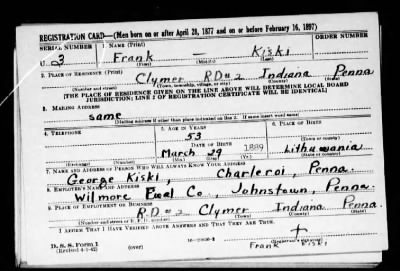 REGISTRATION CARD—(Men born on or after April 28, 1877 and on or before February 16, 1897)
SERIAL NUMBER 1. NAME (Print) ORDER NUMBER
U 3 Frank — Kiski
(First) (Middle) (Last)
2. PLACE OF RESIDENCE (Print)
Clymer RD#2 Indiana Penna
(Number and street) (Town, township, village, or city) (County) (State)
[THE PLACE OF RESIDENCE GIVEN ON THE LINE ABOVE WILL DETERMINE LOCAL BOARD
JURISDICTION; LINE 2 OF REGISTRATION CERTIFICATE WILL BE IDENTICAL]
3. MAILING ADDRESS
same
[Mailing address if other than place indicated on line 2. If same insert word same]
4. TELEPHONE 5. AGE IN YEARS 6. PLACE OF BIRTH
53
DATE OF BIRTH
(Town or county)
March 29 1889 Lithuwania
(Exchange) (Number) (Mo.) (Day) (Yr.) (State or country)
7. NAME AND ADDRESS OF PERSON WHO WILL ALWAYS KNOW YOUR ADDRESS
George Kiski, Charleroi, Penna.
8. EMPLOYER'S NAME AND ADDRESS
Wilmore Fuel Co., Johnstown, Penna.
9. PLACE OF EMPLOYMENT OR BUSINESS
R.D#2 Clymer Indiana Penna.
(Number and street or R. F. D. number) (Town) (County) (State)
I AFFIRM THAT I HAVE VERIFIED ABOVE ANSWERS AND THAT THEY ARE TRUE.
D. S. S. Form 1
(Revised 4-1-42) (over)
Frank Kiski